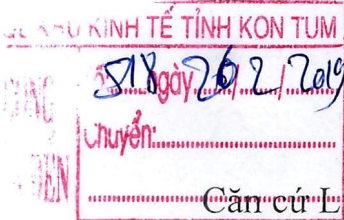 KHU KINH TẾ TỈNH KON TUM
Số: 518 ngày 26/2/2019
Chuyển:
Căn cứ L